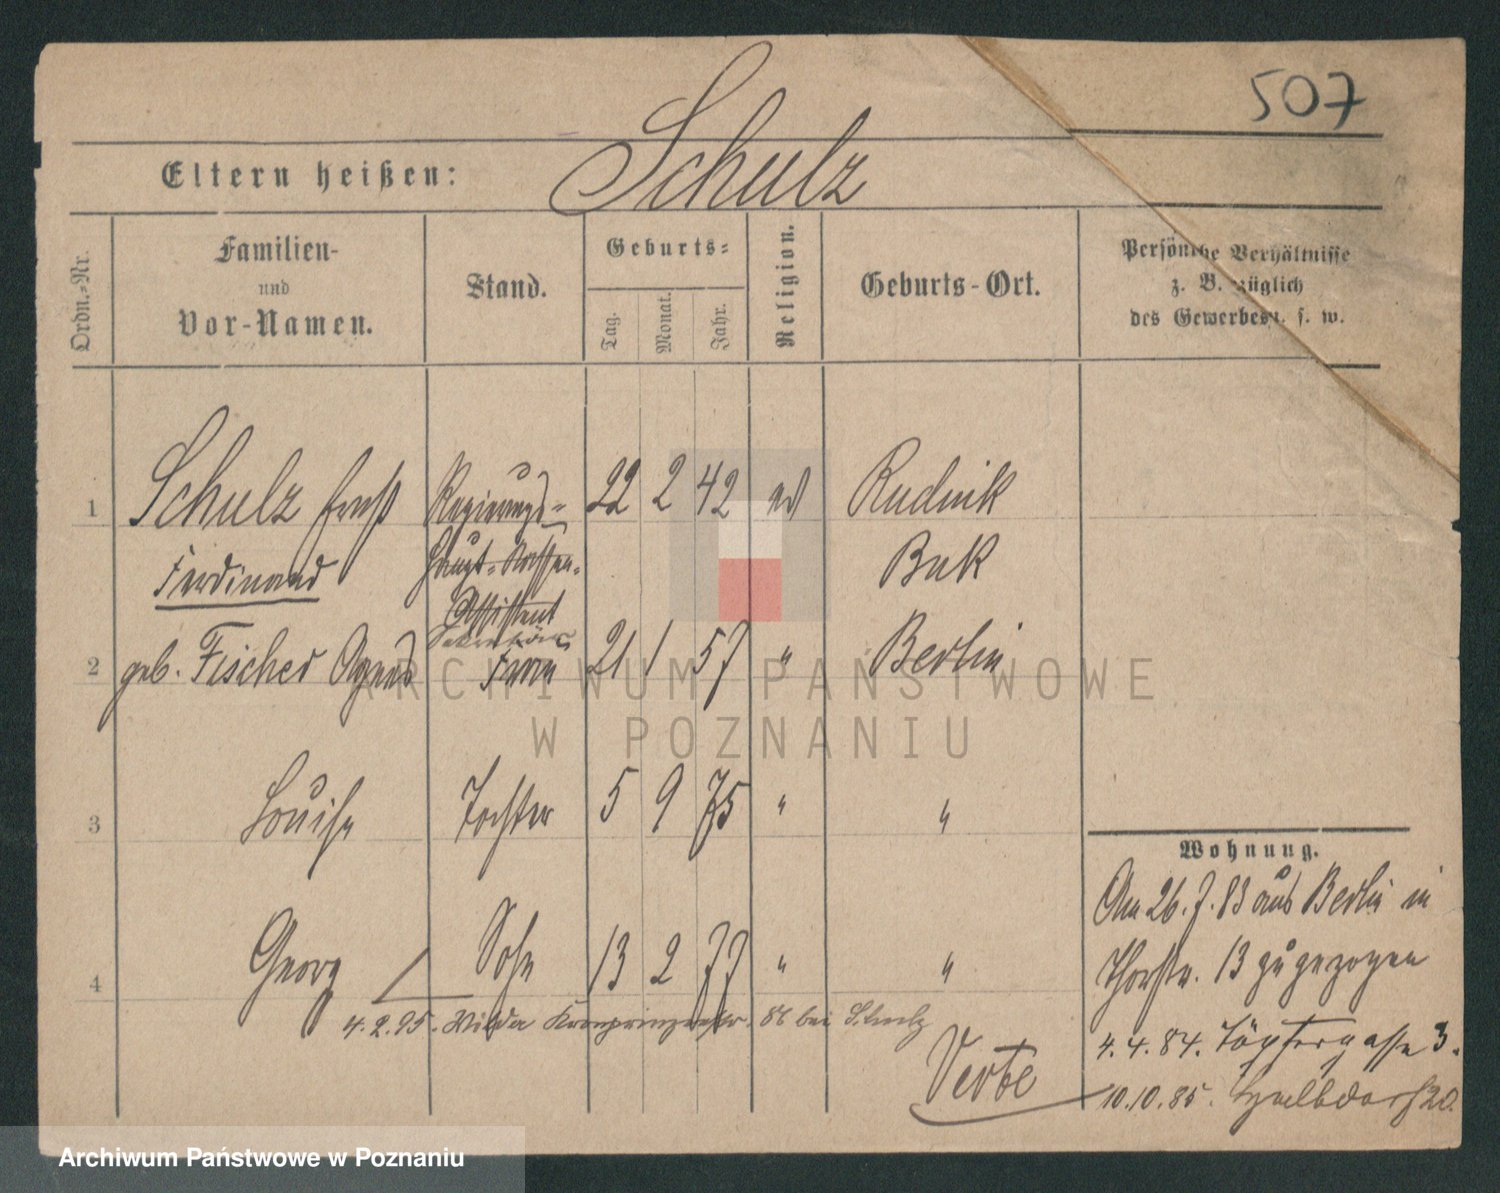 507
Eltern heißen: Schulz
Ordn.-Nr.
Familien-
und
Vor-Namen.
Stand.
Geburts-
Tag.
Monat.
Jahr.
Religion.
Geburts-Ort.
Persönliche Verhältnisse
z. B. züglich
des Gewerbes u. s. w.
1 Schulz Ernst Regierungs- 22 2 42 ev Rudnik
Ferdinand Haupt-Kassen- Buk
Assistent
Sekretär
2 geb. Fischer Agnes Frau 21 1 57 " Berlin
3 Louise Tochter 5 9 75 " "
4 Georg Sohn 13 2 77 " "
4.2.95. Wilda Kronprinzenstr. 86 bei Schulz
Wohnung.
Am 26.7.83 aus Berlin in
Thorstr. 13 zugezogen
4.4.84. Töpfergasse 3.
10.10.85. Halbdorfstr 20.
ARCHIWUM PAŃSTWOWE
W POZNANIU
Archiwum Państwowe w Poznaniu